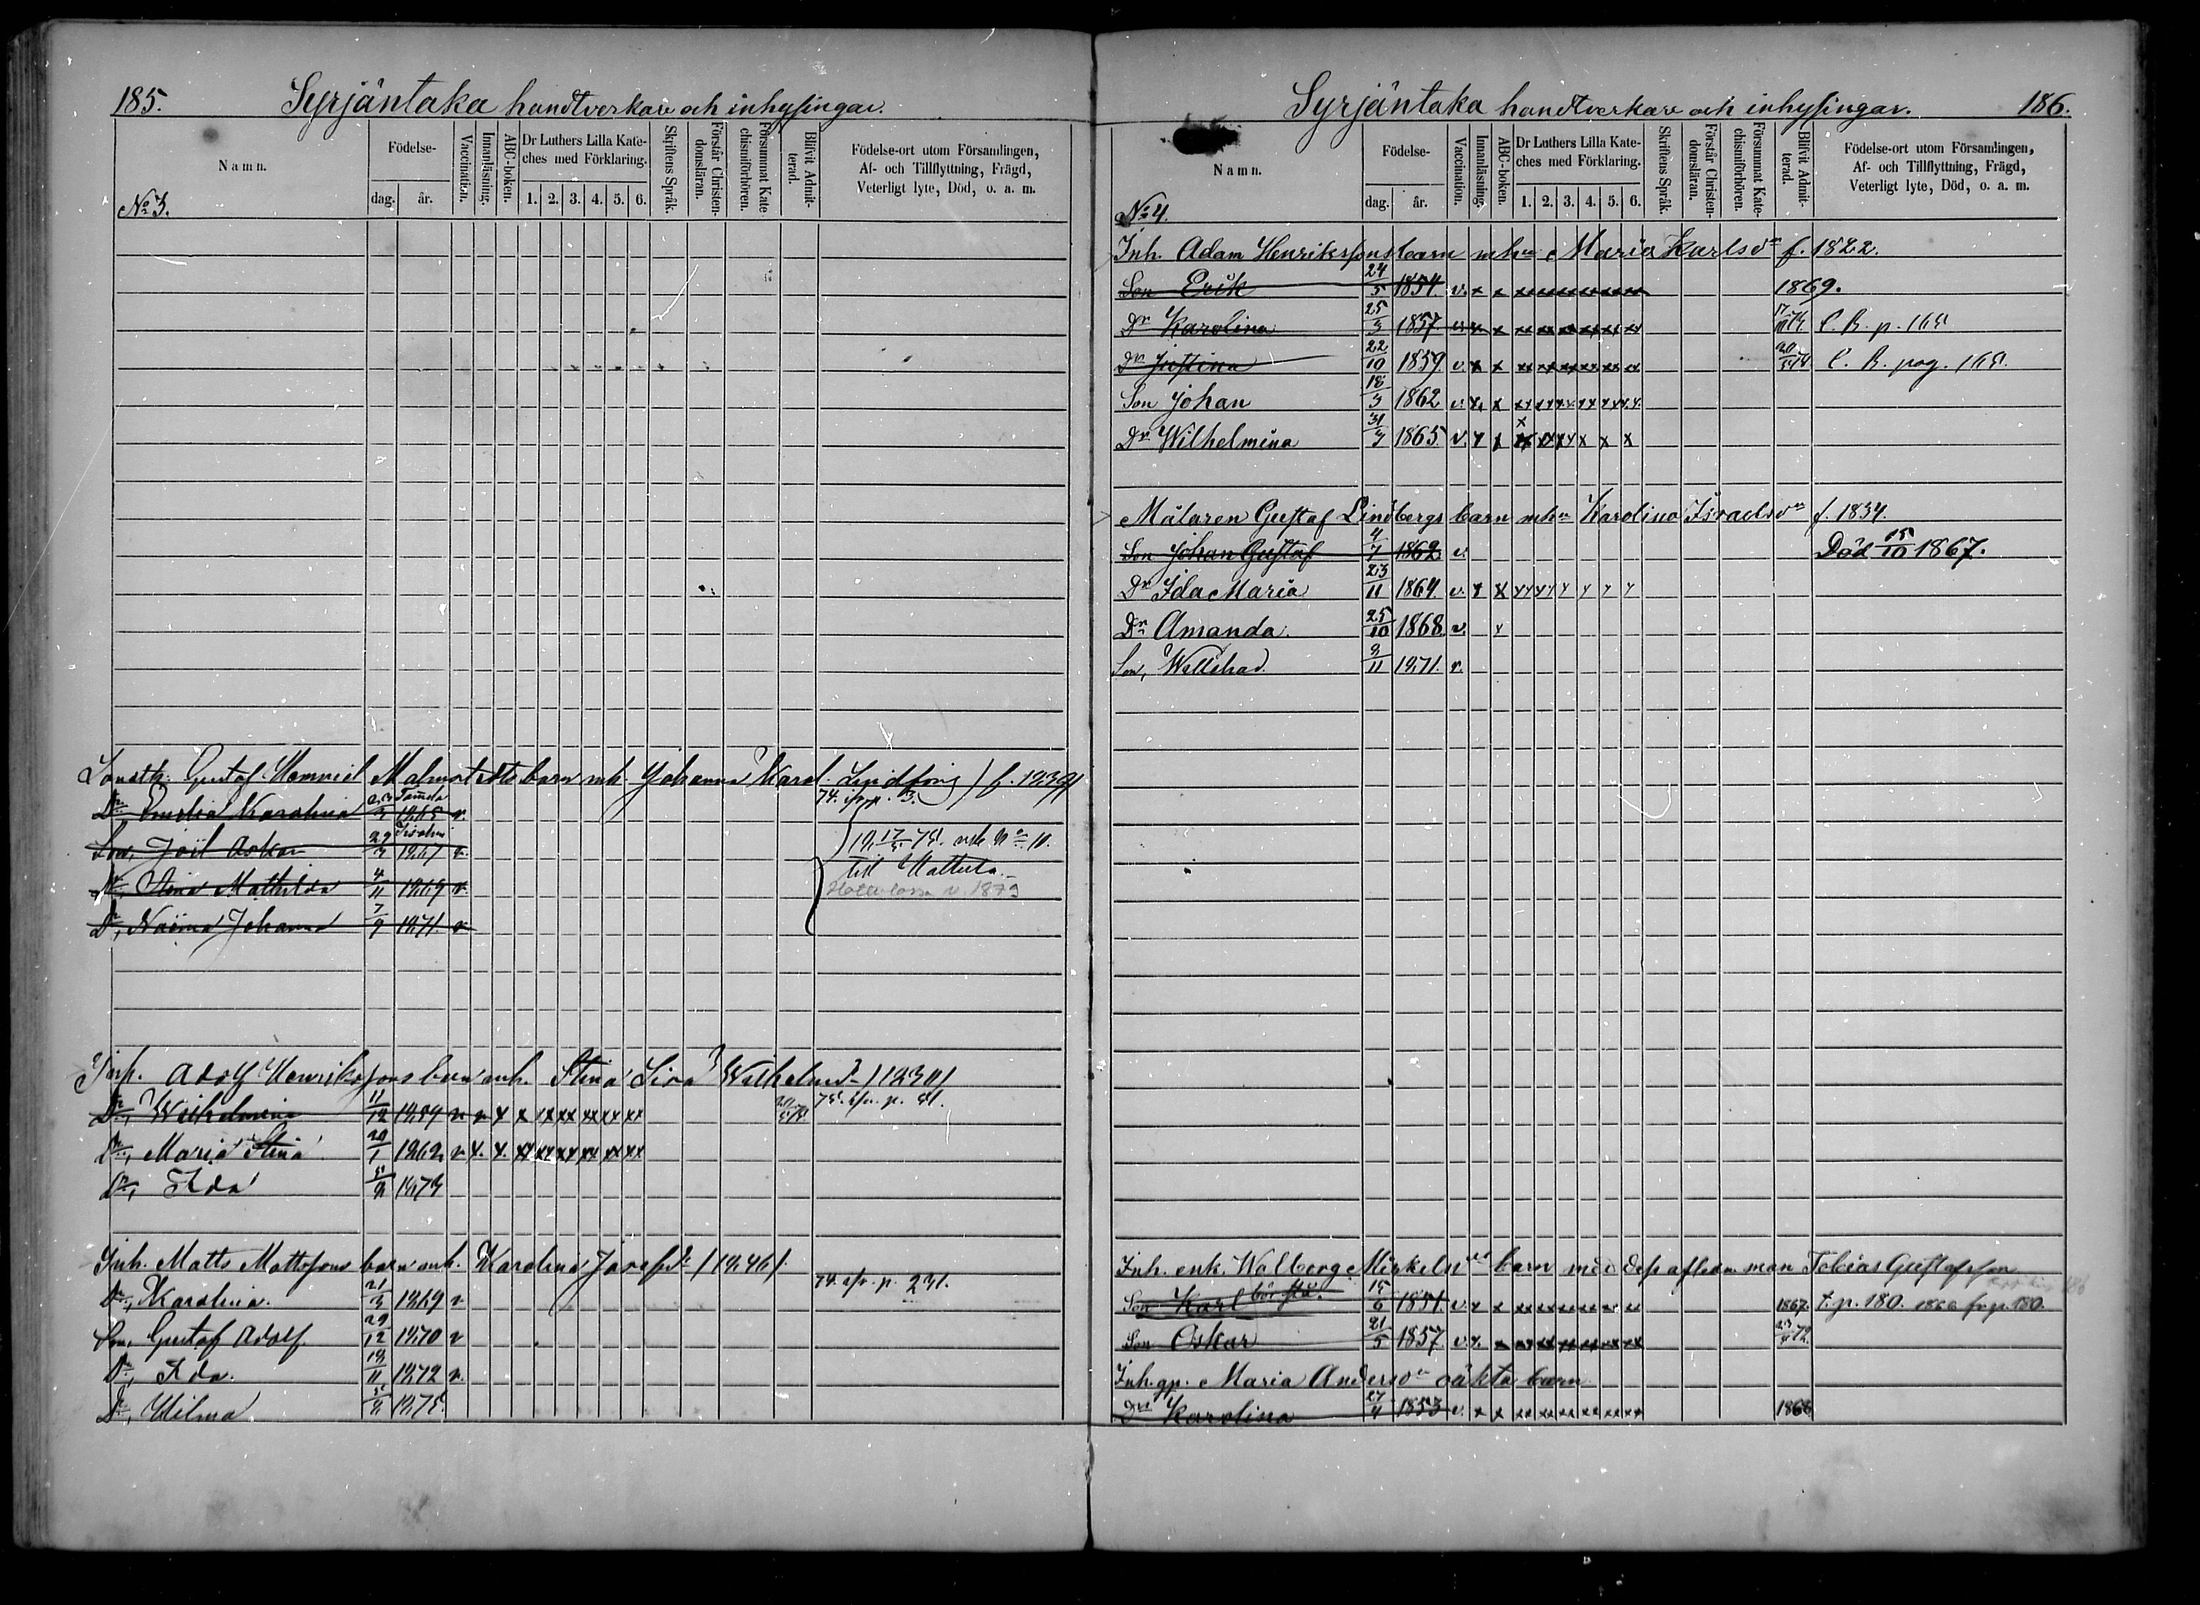 185. Syrjäntaka handtverkare och inhysingar.
Namn.
Födelse-
dag. år.
Vaccination.
Innanläsning.
ABC-boken.
Dr Luthers Lilla Kate-
ches med Förklaring.
1. 2. 3. 4. 5. 6.
Skriftens Språk.
Förstår Christen-
domsläran.
Försummat Kate
chismiförhören.
Blifvit Admit-
terad.
Födelse-ort utom Församlingen,
Af- och Tillflyttning, Frägd,
Veterligt lyte, Död, o. a. m.
No 3.
Gustaf Malmstedts barn mh. Johanna Karol. Lindfors
Dr, Emelia Karolina 1865 v.
74. p. 3.
Son, Joil Oskar 29/3 1867 v.
Dr, Stina Mathilda 4/11 1869 v.
till Hattula.
Dr, Naima Johanna 7/9 1871. v
Inh. Adolf Henrikssons barn mh. Stina Lisa Wilhelmsdr (1830)
Dr, Wilhelmina 11/12 1859 v v x x xx xx xx xx xx
Dr, Maria Stina 20/1 1862 v x. x. xx xx xx xx xx xx
Dr, Ida 1873
Inh. Matts Mattssons barn mh. Karolina Josefsdr (1846).
Dr, Karolina. 21/3 1869 v
74. p. 231.
Son, Gustaf Adolf 29/12 1870 v
Dr, Ida. 18/11 1872 v.
Dr, Hilma 1875.
Syrjäntaka handtverkare och inhysingar. 186.
Namn.
Födelse-
dag. år.
Vaccination.
Innanläsning.
ABC-boken.
Dr Luthers Lilla Kate-
ches med Förklaring.
1. 2. 3. 4. 5. 6.
Skriftens Språk.
Förstår Christen-
domsläran.
Försummat Kate-
chismiförhören.
Blifvit Admit-
terad.
Födelse-ort utom Församlingen,
Af- och Tillflyttning, Frägd,
Veterligt lyte, Död, o. a. m.
No 4.
Inh. Adam Henrikssons barn mhu Maria Karlsdr f. 1822.
Son Erik 24/5 1854 v. x x xx xx xx xx xx xx 1869.
Dr Karolina 25/3 1857 v x x xx xx xx xx xx xx C. B. p. 165
Dr Justina 22/10 1859 v. x x xx xx xx xx xx xx C. B. pag. 165.
Son Johan 18/3 1862 v. x. x xx xx xx xx xx xx
Dr Wilhelmina 31/3 1865 v. x x xx xx xx x x x
Målaren Gustaf Lindbergs barn mhu Karolina Israelsdr f. 1834.
Son Johan Gustaf 4/7 1862 v Död 15/10 1867.
Dr Ida Maria 23/11 1864 v. x x xx xx x x x x
Dr Amanda. 25/10 1868 v. x
Son, 9/11 1871. v.
Inh. enk. Walborg Mickelsdrs barn med dess afledne man Tobias Gustafsson
Son Karl börstu. 15/6 1851 v. x x xx xx xx xx xx xx 1867. t. p. 180.
Son Oskar 21/5 1857. v. x. x xx xx xx xx xx xx
Inh. qp. Maria Andersdr oäkta barn
Dr Karolina 27/4 1853 v. x x xx xx xx xx xx xx 1868